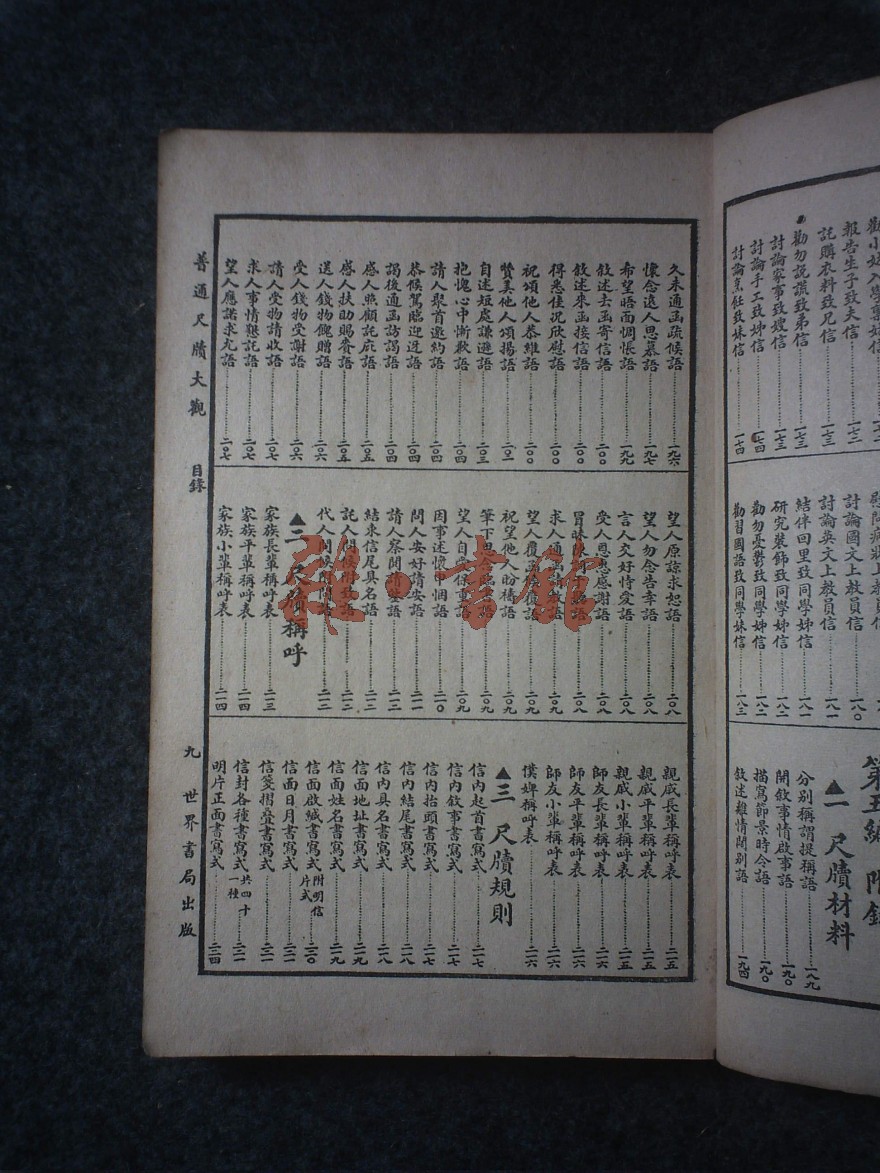 報告生子致夫信 一七二
託購衣料致兄信 一七三
勸勿說謊致弟信 一七三
討論家事致嫂信 一七三
討論手工致姊信 一七四
討論烹飪致妹信 一七四
討論國文上教員信 一八〇
討論英文上教員信 一八一
結伴回里致同學姊信 一八一
研究裝飾致同學姊信 一八二
勸勿憂鬱致同學姊信 一八二
勸習國語致同學妹信 一八三
第五編 附錄
▲一 尺牘材料
分別稱謂提稱語 一八九
開敘事情啟事語 一九〇
描寫節景時令語 一九〇
敘述離情闊別語 一九四
久未通函疏候語 一九六
懷念遠人思慕語 一九七
希望晤面惆悵語 一九九
敘述去函寄信語 二〇〇
敘述來函接信語 二〇〇
得悉佳況欣慰語 二〇〇
祝頌他人恭維語 二〇〇
贊美他人頌揚語 二〇一
自述短處謙遜語 二〇三
抱愧心中慚歉語 二〇四
請人聚首邀約語 二〇四
恭候駕臨迎迓語 二〇四
謁後通函訪謁語 二〇四
感人照顧託庇語 二〇五
感人扶助賜賚語 二〇五
送人錢物餽贈語 二〇六
受人錢物受謝語 二〇六
請人受物請收語 二〇七
求人事情懇託語 二〇七
望人應諾求允語 二〇七
望人原諒求恕語 二〇八
望人勿念告幸語 二〇八
言人交好恃愛語 二〇八
受人恩惠感謝語 二〇八
冒昧 語 二〇八
求人通函 語 二〇九
望人覆函 語 二〇九
祝望他人盼禱語 二〇九
筆下 語 二〇九
望人自 保重語 二〇九
因事述懷 悃語 二一〇
問人安好請安語 二一一
請人察閱請 語 二一二
結束信尾具名語 二一二
託人問候附致語 二一二
代人問候附 語 二一二
▲二 尺牘稱呼
家族長輩稱呼表 二一三
家族平輩稱呼表 二一四
家族小輩稱呼表 二一四
親戚長輩稱呼表 二一五
親戚平輩稱呼表 二一五
親戚小輩稱呼表 二一五
師友長輩稱呼表 二一六
師友平輩稱呼表 二一六
師友小輩稱呼表 二一六
僕婢稱呼表 二一六
▲三 尺牘規則
信內起首書寫式 二一七
信內敘事書寫式 二一七
信內抬頭書寫式 二一七
信內結尾書寫式 二一八
信內具名書寫式 二一八
信面地址書寫式 二一九
信面姓名書寫式 二一九
信面啟緘書寫式 附明信片式 二二〇
信面日月書寫式 二二一
信箋摺疊書寫式 二二一
信封各種書寫式 共四十一種 二二一
明片正面書寫式 二二四
普通尺牘大觀 目錄
九 世界書局出版
雜·書館